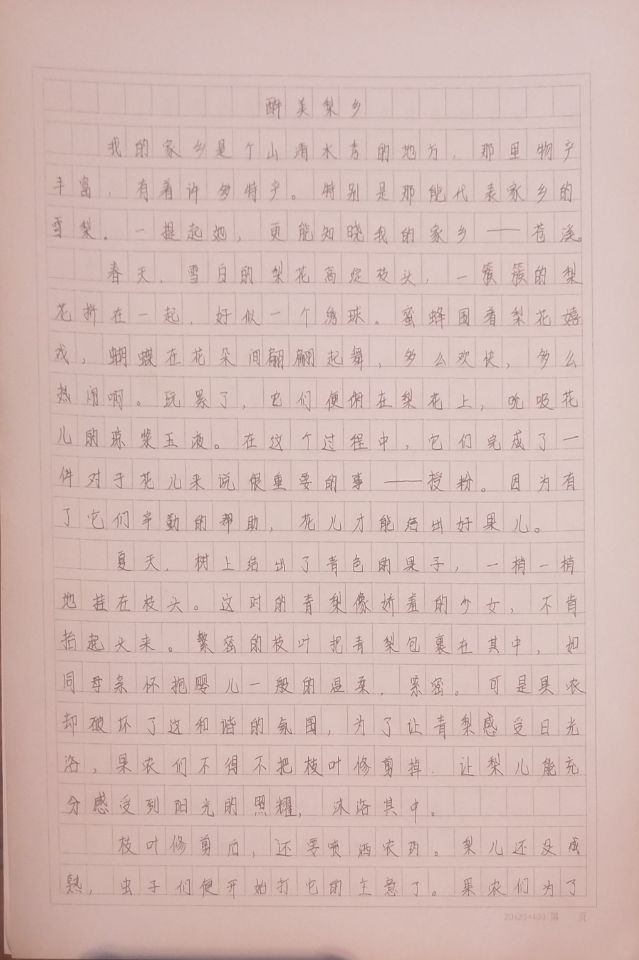 醉美梨乡
我的家乡是个山清水秀的地方，那里物产
丰富，有着许多特产。特别是那能代表家乡的
雪梨。一提起她，更能知晓我的家乡——苍溪。
春天，雪白的梨花高绽枝头，一簇簇的梨
花挤在一起，好似一个绣球。蜜蜂围着梨花嬉
戏，蝴蝶在花朵间翩翩起舞，多么欢快，多么
热闹啊。玩累了，它们便俯在梨花上，吮吸花
儿的琼浆玉液。在这个过程中，它们完成了一
件对于花儿来说很重要的事——授粉。因为有
了它们辛勤的帮助，花儿才能结出好果儿。
夏天，树上结出了青色的果子，一梢一梢
地挂在枝头。这时的青梨像娇羞的少女，不肯
抬起头来。繁密的枝叶把青梨包裹在其中，如
同母亲怀抱婴儿一般的温柔，紧密。可是果农
却破坏了这和谐的氛围，为了让青梨感受日光
浴，果农们不得不把枝叶修剪掉，让梨儿能充
分感受到阳光的照耀，沐浴其中。
枝叶修剪后，还要喷洒农药。梨儿还没成
熟，虫子们便开始打它的主意了。果农们为了
20×20=400 第 页